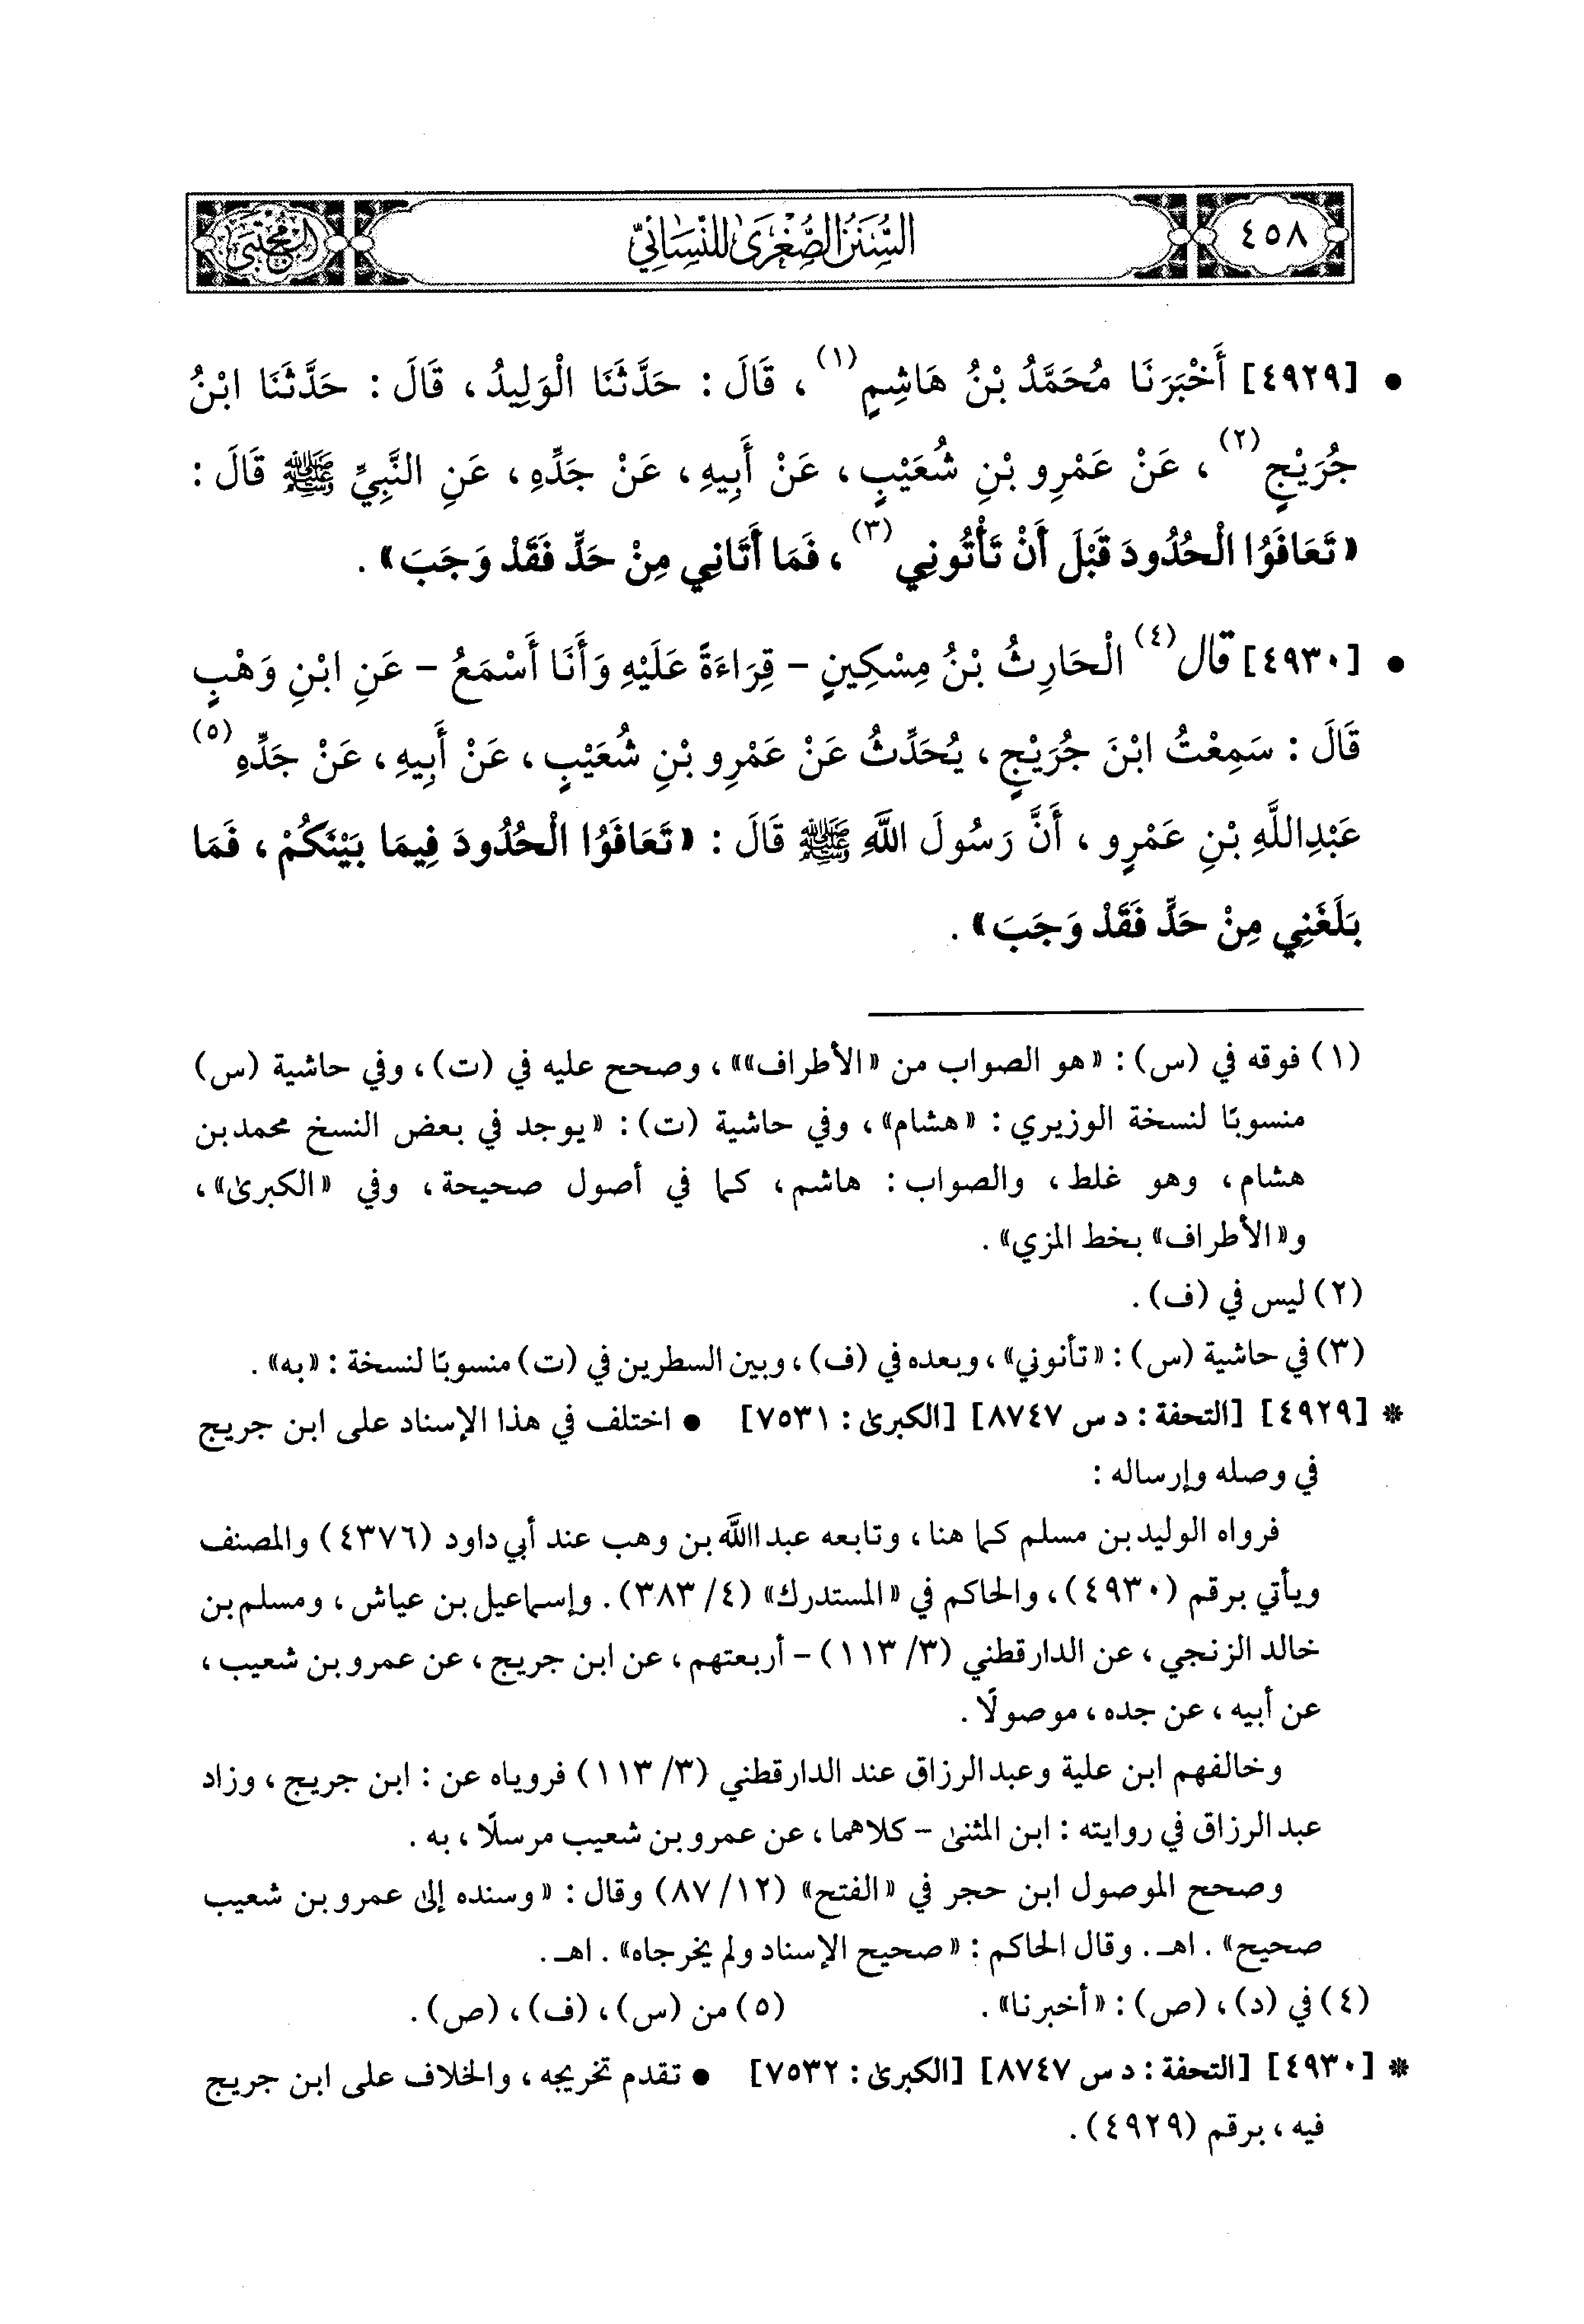 ٤٥٨
السُّنَنُ الصُّغْرَىٰ لِلنَّسَائِيِّ
المجتبى
• [٤٩٢٩] أَخْبَرَنَا مُحَمَّدُ بْنُ هَاشِمٍ(١)، قَالَ: حَدَّثَنَا الْوَلِيدُ، قَالَ: حَدَّثَنَا ابْنُ
جُرَيْجٍ(٢)، عَنْ عَمْرِو بْنِ شُعَيْبٍ، عَنْ أَبِيهِ، عَنْ جَدِّهِ، عَنِ النَّبِيِّ ﷺ قَالَ:
«تَعَافَوُا الْحُدُودَ قَبْلَ أَنْ تَأْتُونِي(٣)، فَمَا أَتَانِي مِنْ حَدٍّ فَقَدْ وَجَبَ».
• [٤٩٣٠] قال(٤) الْحَارِثُ بْنُ مِسْكِينٍ - قِرَاءَةً عَلَيْهِ وَأَنَا أَسْمَعُ - عَنِ ابْنِ وَهْبٍ
قَالَ: سَمِعْتُ ابْنَ جُرَيْجٍ، يُحَدِّثُ عَنْ عَمْرِو بْنِ شُعَيْبٍ، عَنْ أَبِيهِ، عَنْ جَدِّهِ(٥)
عَبْدِاللَّهِ بْنِ عَمْرٍو، أَنَّ رَسُولَ اللَّهِ ﷺ قَالَ: «تَعَافَوُا الْحُدُودَ فِيمَا بَيْنَكُمْ، فَمَا
بَلَغَنِي مِنْ حَدٍّ فَقَدْ وَجَبَ».
(١) فوقه في (س): «هو الصواب من «الأطراف»»، وصحح عليه في (ت)، وفي حاشية (س)
منسوبًا لنسخة الوزيري: «هشام»، وفي حاشية (ت): «يوجد في بعض النسخ محمد بن
هشام، وهو غلط، والصواب: هاشم، كما في أصول صحيحة، وفي «الكبرىٰ»،
و«الأطراف» بخط المزي».
(٢) ليس في (ف).
(٣) في حاشية (س): «تأنوني»، وبعده في (ف)، وبين السطرين في (ت) منسوبًا لنسخة: «به».
* [٤٩٢٩] [التحفة: د س ٨٧٤٧] [الكبرىٰ: ٧٥٣١] • اختلف في هذا الإسناد على ابن جريج
في وصله وإرساله:
فرواه الوليد بن مسلم كما هنا، وتابعه عبدالله بن وهب عند أبي داود (٤٣٧٦) والمصنف
ويأتي برقم (٤٩٣٠)، والحاكم في «المستدرك» (٤/ ٣٨٣). وإسماعيل بن عياش، ومسلم بن
خالد الزنجي، عن الدارقطني (٣/ ١١٣) - أربعتهم، عن ابن جريج، عن عمرو بن شعيب،
عن أبيه، عن جده، موصولًا.
وخالفهم ابن علية وعبد الرزاق عند الدارقطني (٣/ ١١٣) فروياه عن: ابن جريج، وزاد
عبد الرزاق في روايته: ابن المثنىٰ - كلاهما، عن عمرو بن شعيب مرسلًا، به.
وصحح الموصول ابن حجر في «الفتح» (١٢/ ٨٧) وقال: «وسنده إلىٰ عمرو بن شعيب
صحيح». اهـ. وقال الحاكم: «صحيح الإسناد ولم يخرجاه». اهـ.
(٤) في (د)، (ص): «أخبرنا». (٥) من (س)، (ف)، (ص).
* [٤٩٣٠] [التحفة: د س ٨٧٤٧] [الكبرىٰ: ٧٥٣٢] • تقدم تخريجه، والخلاف على ابن جريج
فيه، برقم (٤٩٢٩).